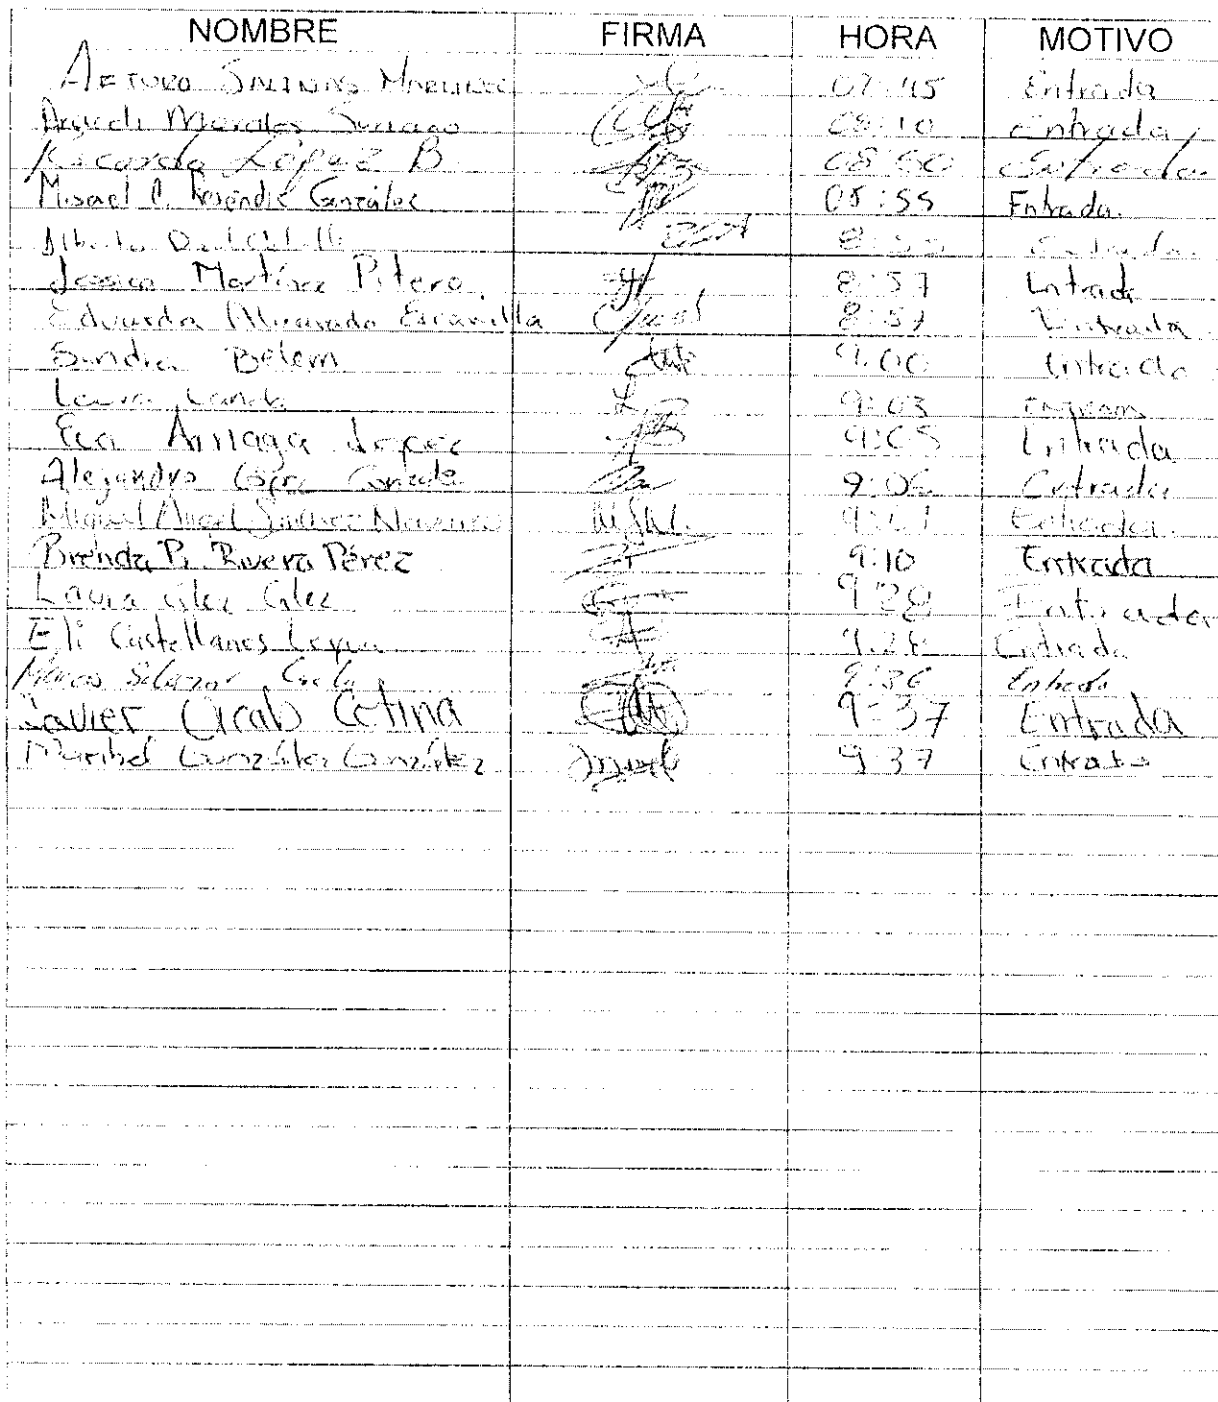 NOMBRE FIRMA HORA MOTIVO
Arturo Salinas Martinez 07:45 Entrada
Morales 08:10 Entrada
Ricardo López B. 08:50 Entrada
Misael Resendiz González 08:55 Entrada.
Alberto Entrada.
Jessica Martínez Pitero 8:57 Entrada
Eduardo Alvarado Escamilla 8:57 Entrada
Sandra Belem 9:00 Entrada
Laura Landa 9:03
Eva Arriaga López 9:05 Entrada
Alejandro López González 9:06 Entrada
Miguel Angel Sánchez Navarro Entrada
Brenda P. Rivera Pérez 9:10 Entrada
Laura Glez Glez 9:28 Entrada
Eli Castellanos Leyva 9:28 Entrada
Marcos Salazar 9:36 Entrada
Javier Cicab Cetina 9:37 Entrada
Maribel González González 9:37 Entrada